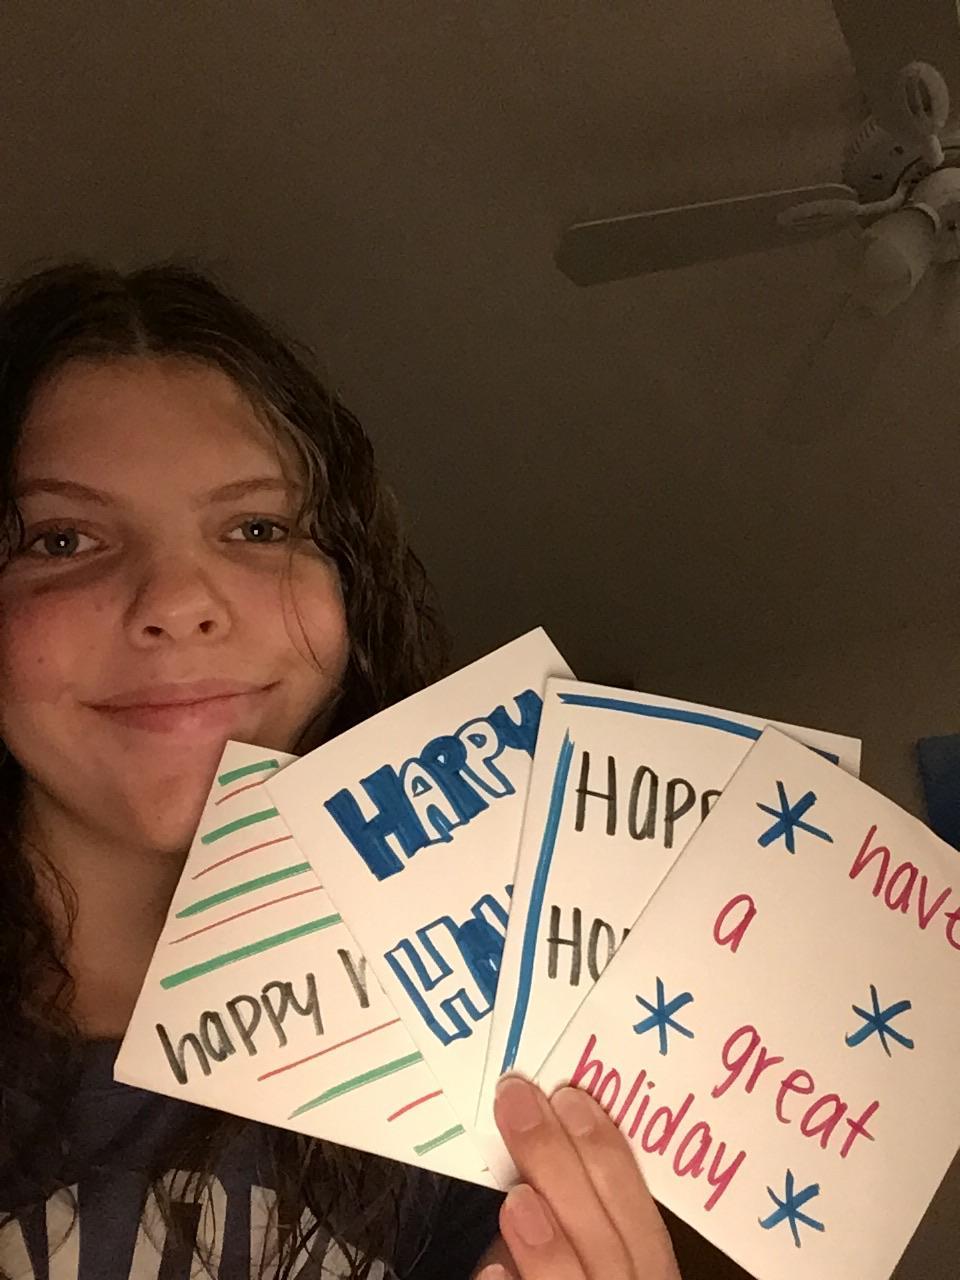 happy h
HAPPY
HO
HAPP
HO
* have
a
* *
great
holiday
*